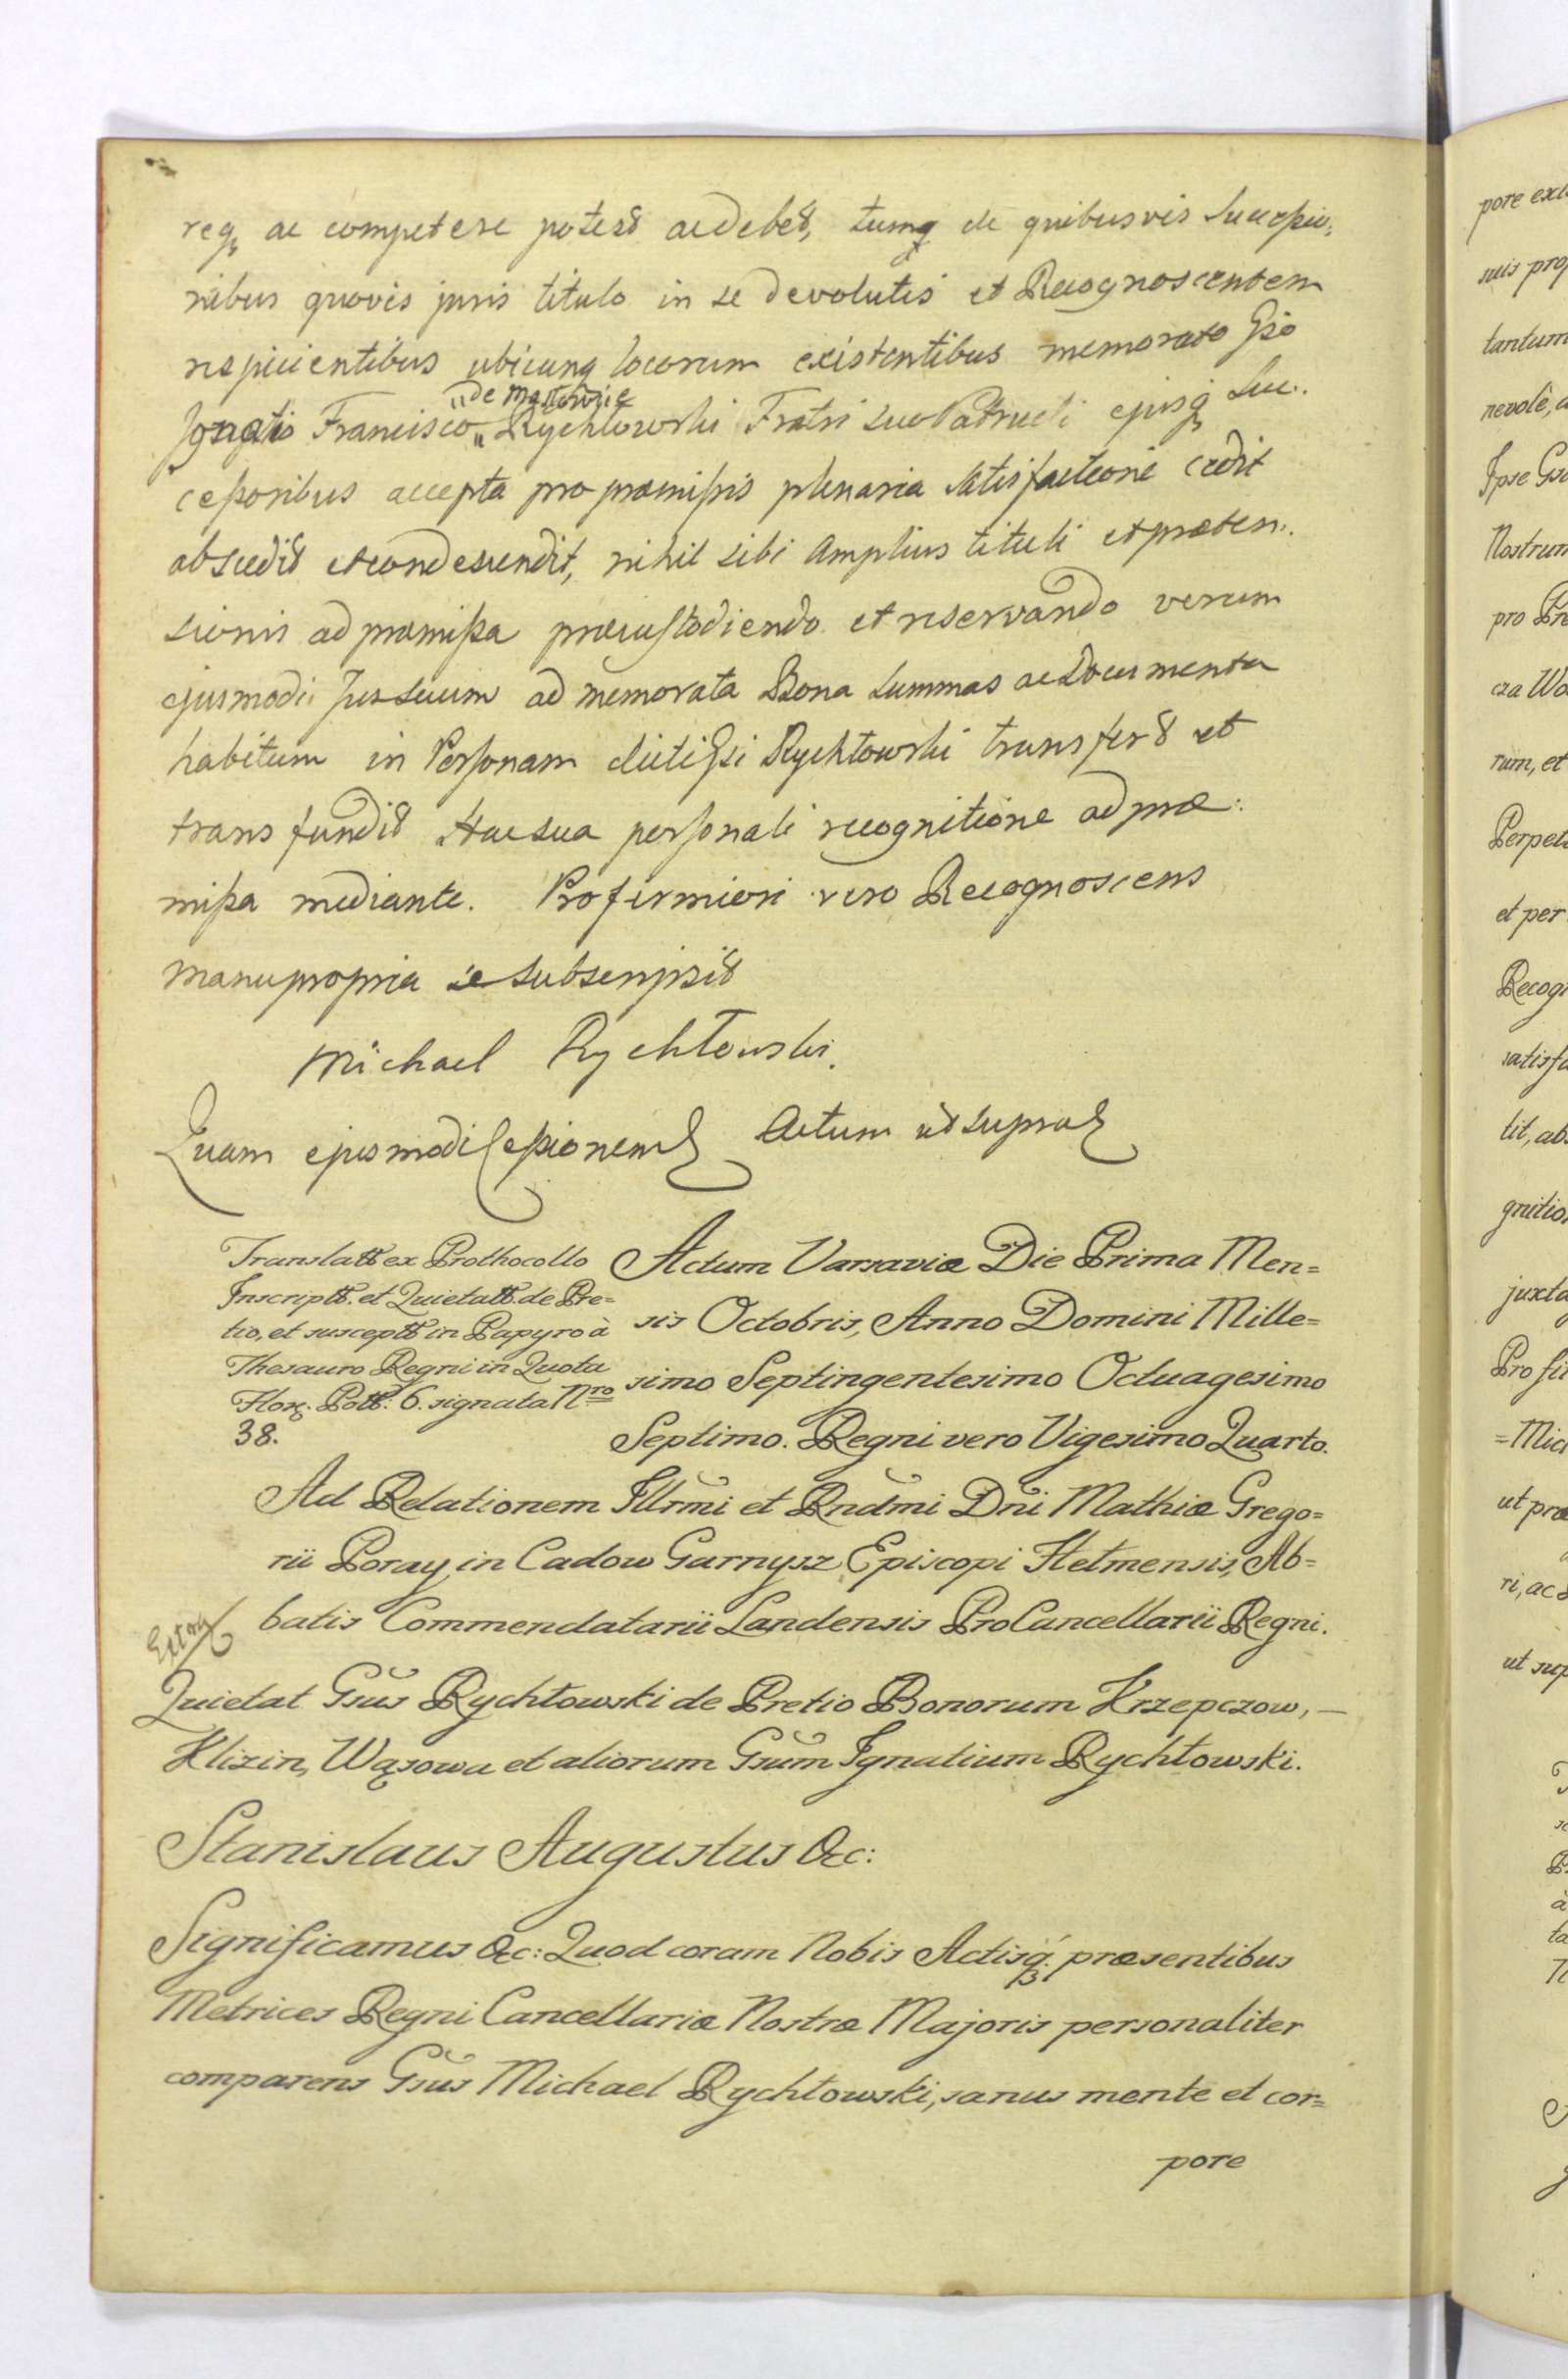 req, ac competere potest ac debet, tumq de quibusvis Successio:
nibus quovis juris titulo in se devolutis et Recognoscentem
respicientibus ubicunq locorum existentibus memorato Gso
"de Mąkowie
Ignatio Francisco " Rychłowski Fratri suo Patrueli ejusq Suc:
cessoribus accepta pro præmissis plenaria satisfactione cedit
abscedit et condescendit, nihil sibi amplius tituli et præten:
sionis ad præmissa præcustodiendo et reservando verum
ejusmodi Jus suum ad memorata Bona Summas ac Documenta
habitum in Personam dicti Gsi Rychłowski transfert et
transfundit Hac sua personali recognitione ad præ:
missa mediante. Pro firmiori vero Recognoscens
manu propria se subscripsit
Michael Rychłowski.
Quam ejusmodi Cessionem Actum ut supra
Translatt ex Prothocollo
Inscriptt. et Quietatt. de Pre=
tio, et susceptt in Papyro à
Thesauro Regni in Quota
Flor. Poll. 6. signata Nro
38.
Actum Varsaviæ Die Prima Men=
sis Octobris, Anno Domini Mille=
simo Septingentesimo Octuagesimo
Septimo. Regni vero Vigesimo Quarto.
Ad Relationem Illrmi et Rndmi Dni Mathiæ Grego=
rii Poray in Cadow Garnysz Episcopi Helmensis, Ab=
batis Commendatarii Landensis ProCancellarii Regni.
Quietat Gsus Rychłowski de Pretio Bonorum Krzepczow, —
Klizin, Wąsowa et aliorum Gsum Ignatium Rychłowski.
Stanislaus Augustus &c:
Significamus &c: Quod coram Nobis Actisq. præsentibus
Metrices Regni Cancellariæ Nostræ Majoris personaliter
comparens Gsus Michael Rychłowski, sanus mente et cor=
pore
suis prop
tantum
nevolè, a
Ipse Gs
Nostrum
pro Pre
cza Wą
rum, et
Perpet
et per
Recog
satisfa
tit, ab
gnitio
juxta
Pro fi
=Mic
ut præ
ri, ac
ut sup